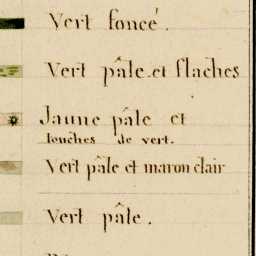 Vert foncé.
Vert pâle et flaches
Jaune pâle et
touches de vert.
Vert pâle et maron clair
Vert pâle.